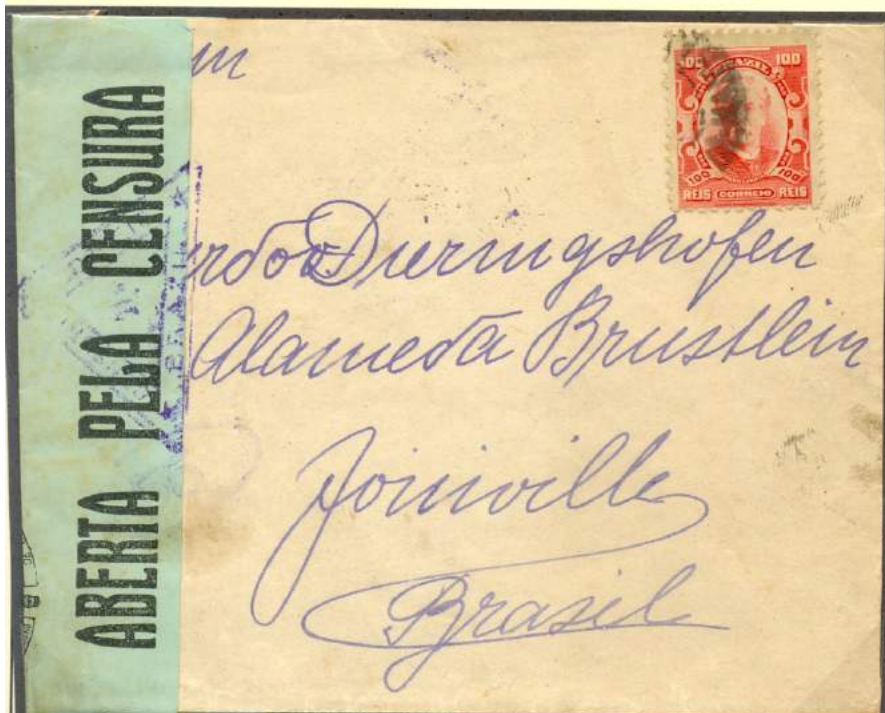 ABERTA PELA CENSURA
100 BRAZIL 100
100 100
REIS CORREIO REIS
Dieringshofen
Alameda Brustlein
Joinville
Brasil